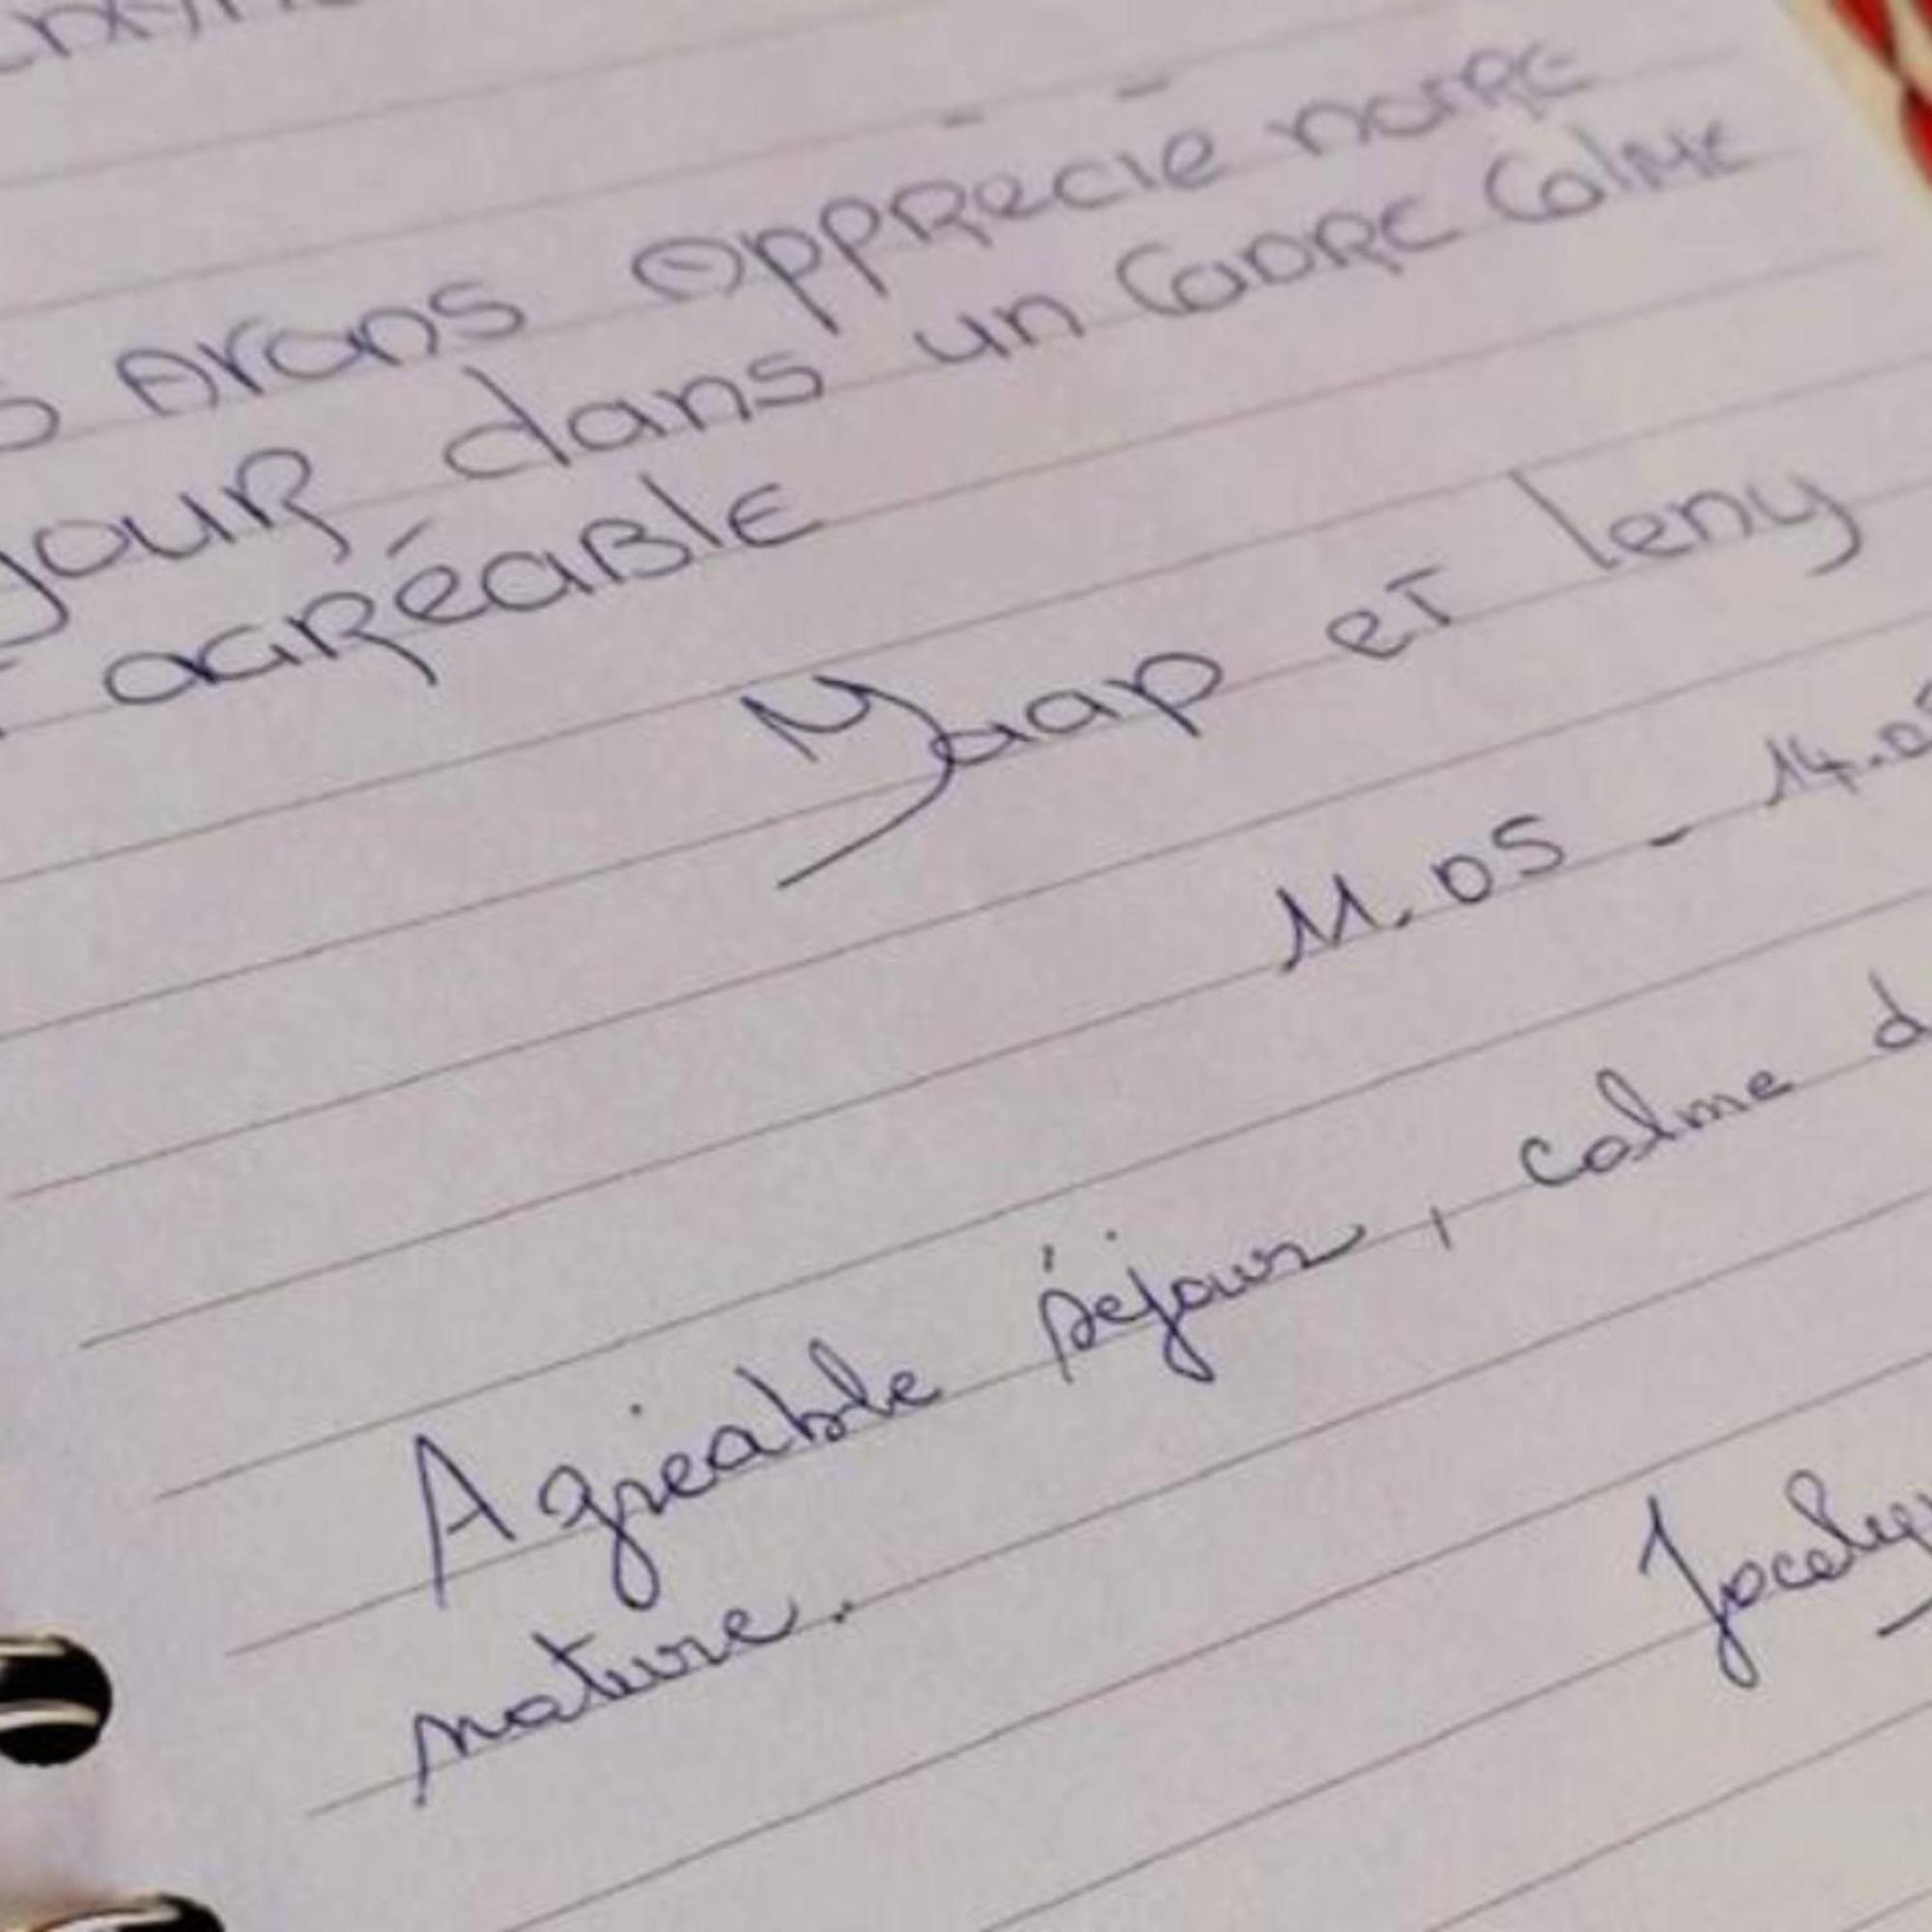 s Avons apprecie notre
jour dans un cadre calme
agréable
et leny
11.05 - 14.05
Agréable séjour, calme d
nature.
Jocely